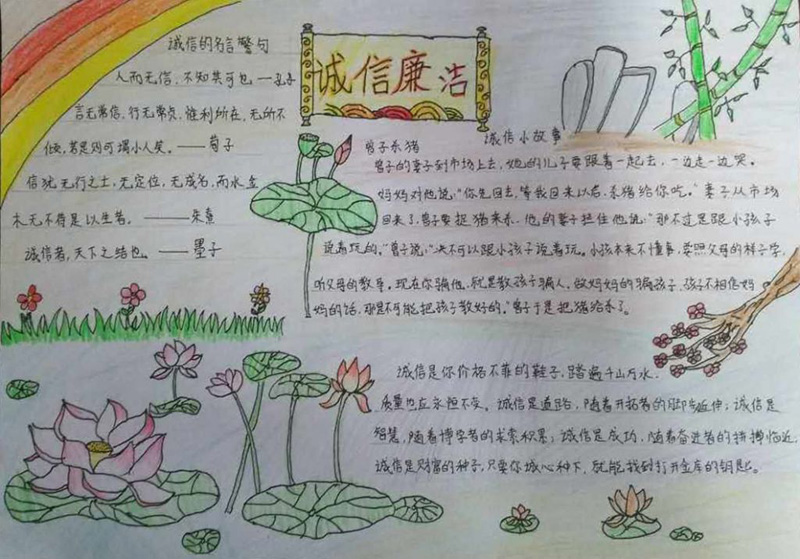 诚信廉洁
诚信的名言警句
人而无信,不知其可也 —孔子
言无常信,行无常贞,惟利所在,无所不
倾,若是则可谓小人矣。——荀子
信犹五行之土,无定位,无成名,而水金
木无不待是以生者。——朱熹
诚信者,天下之结也。——墨子
诚信小故事
曾子杀猪
曾子的妻子到市场上去,她的儿子要跟着一起去,一边走一边哭。
妈妈对他说:“你先回去,等我回来以后,杀猪给你吃。”妻子从市场
回来了,曾子要捉猪来杀,他的妻子拦住他说:“那不过是跟小孩子
说着玩的。”曾子说:“决不可以跟小孩子说着玩。小孩本来不懂事,要照父母的样子学,
听父母的教导。现在你骗他,就是教孩子骗人,做妈妈的骗孩子,孩子不相信妈
妈的话,那是不可能把孩子教好的。”曾子于是把猪给杀了。
诚信是你价格不菲的鞋子,踏遍千山万水,
质量也应永恒不变。诚信是道路,随着开拓者的脚步延伸;诚信是
智慧,随着博学者的求索积累;诚信是成功,随着奋进者的拼搏临近,
诚信是财富的种子,只要你诚心种下,就能找到打开金库的钥匙。